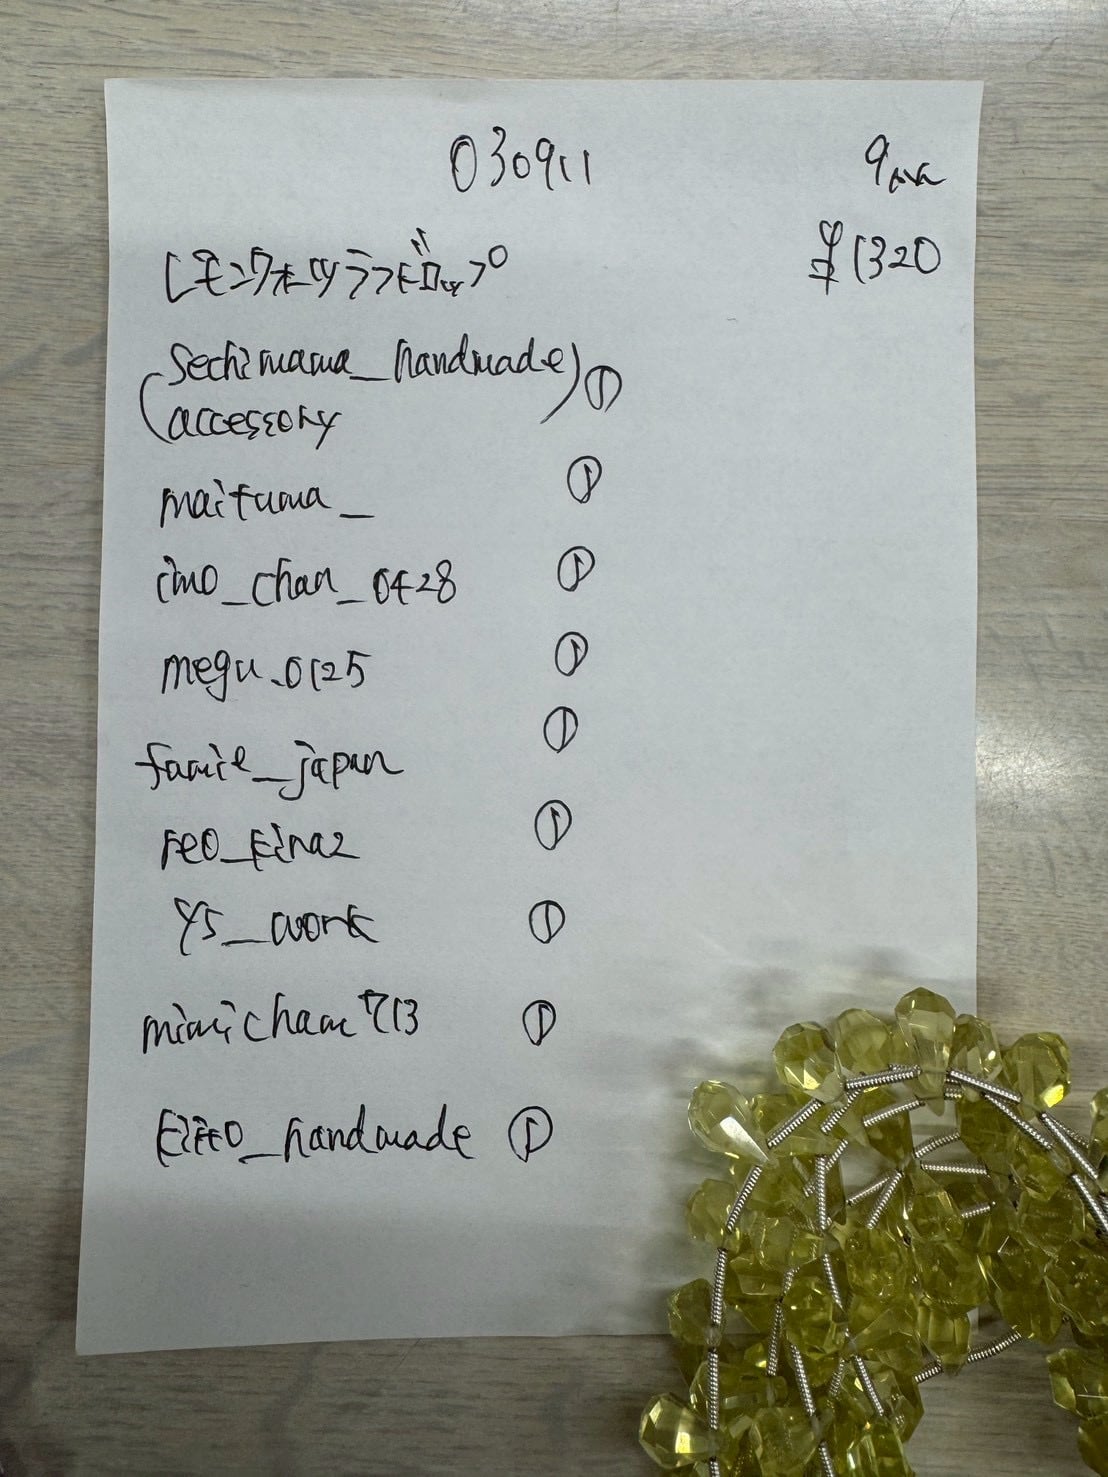 030911
9ava
¥1320
レモンクォーツラフドロップ
sechimama_handmade ①
accessory
maituma_ ①
imo_chan_0428 ①
megu.0125 ①
famie_japan ①
reo_kira2 ①
ys_work ①
mimicham713 ①
kiito_handmade ①